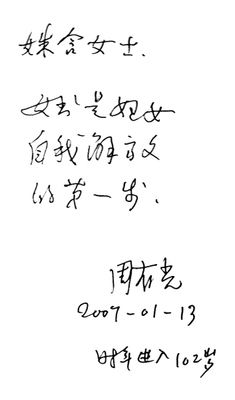 姝含女士.
女书是妇女
自我解放
的第一步.
周有光
2007-01-13
时年进入102岁